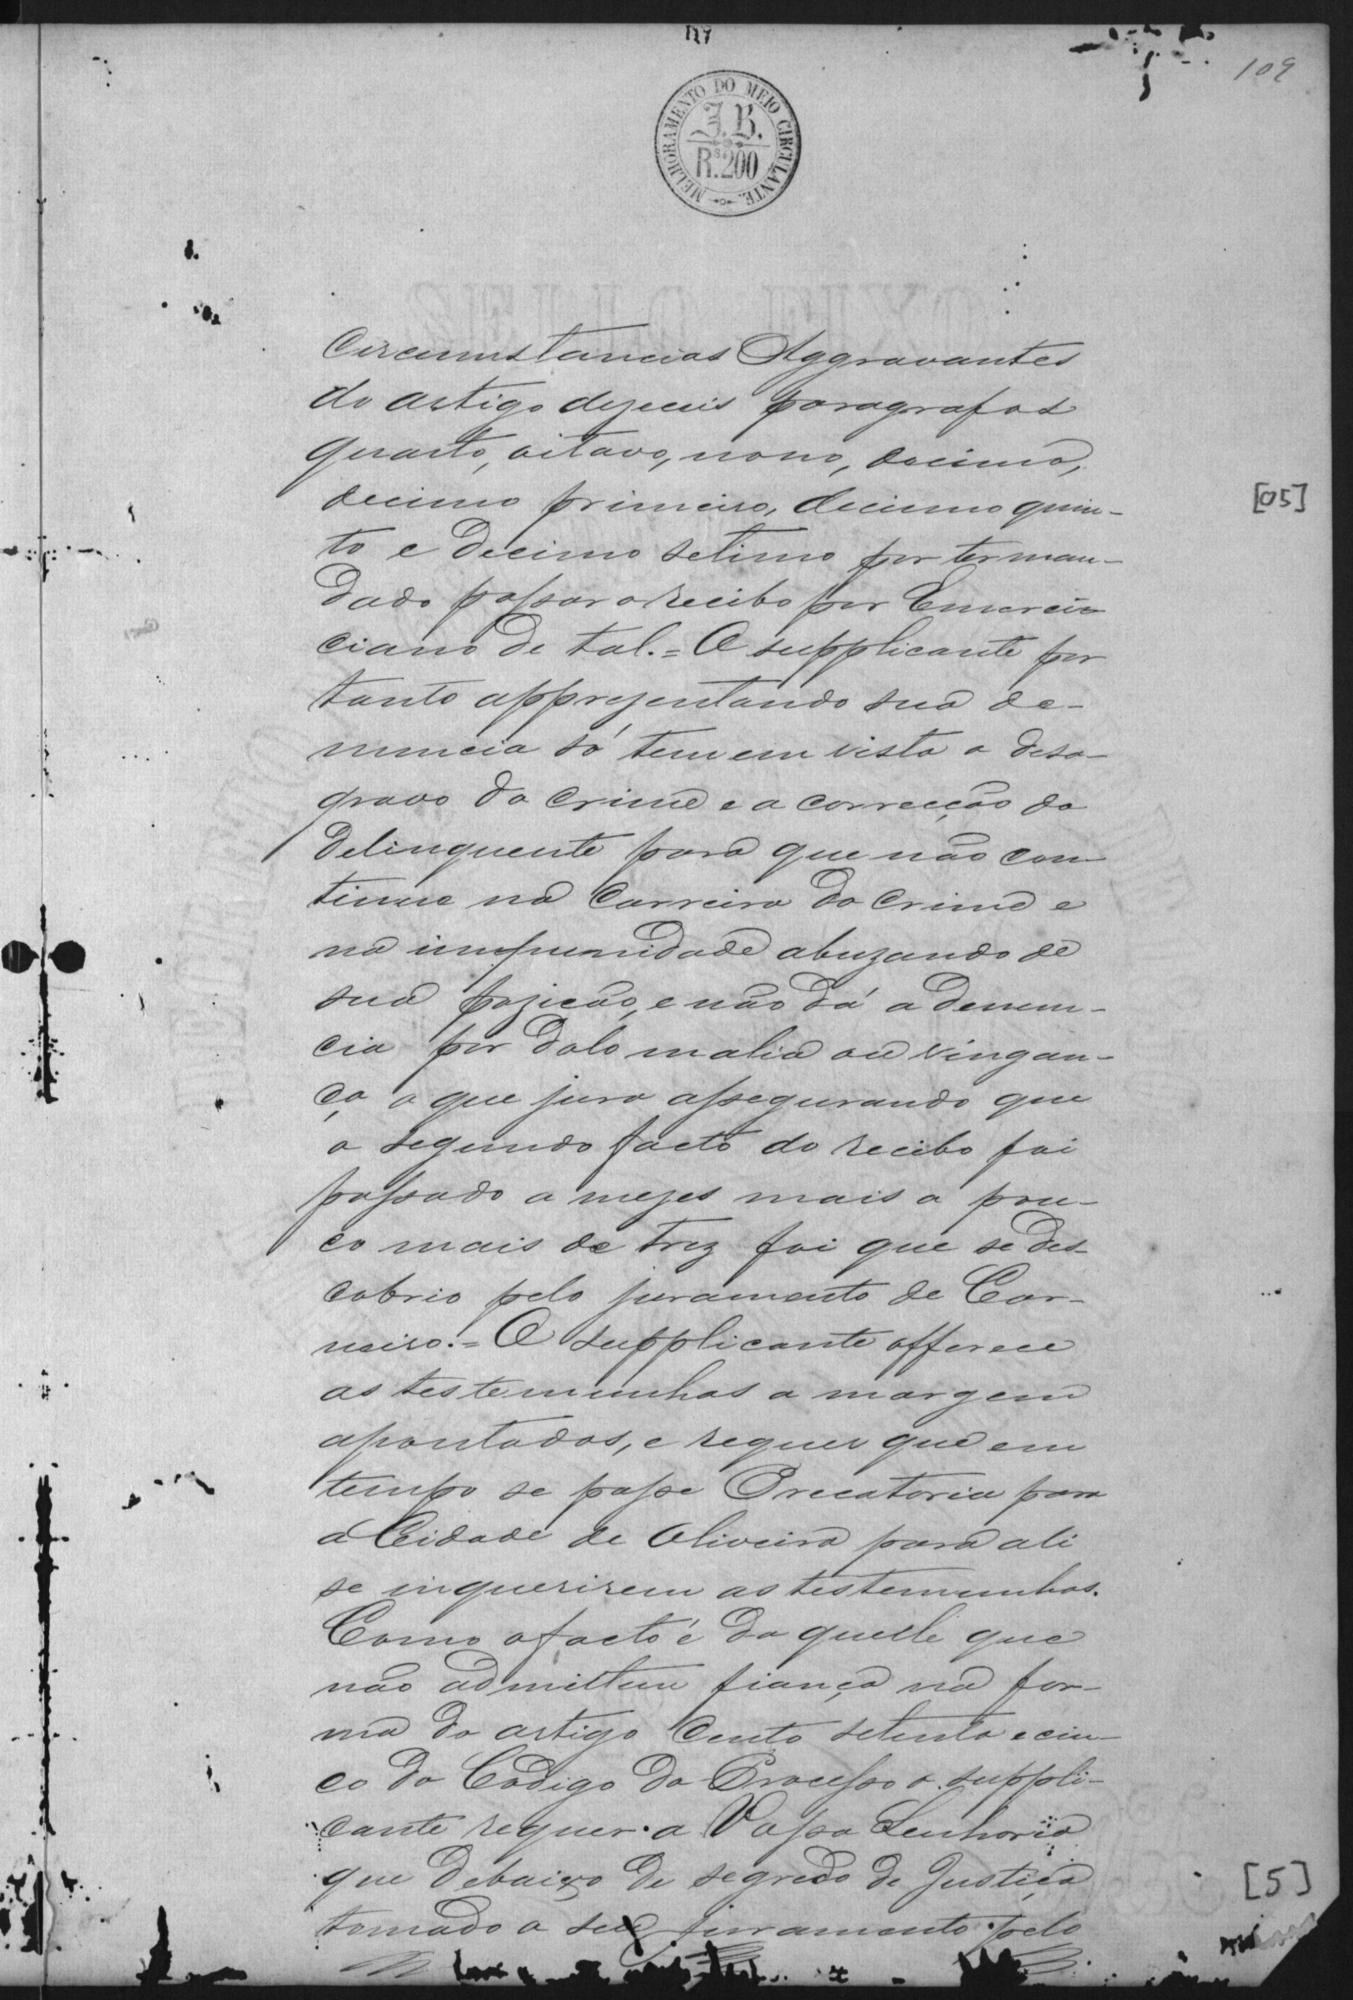 117
109
MELHORAMENTO DO MEIO CIRCULANTE
J.B.
Rs.200
SELLO FIXO
Circumstancias Aggravantes
do artigo dezeceis paragrafos
quarto, oitavo, nono, decimo,
decimo primeiro, decimo quin-
[05]
to e decimo setimo por ter man-
dado passar o recibo por Emeren
ciano de tal.= O supplicante por
tanto apprezentando sua de-
nuncia só tem em vista o desa-
gravo do crime e a correcção do
delinquente para que não con-
tinue na carreira do crime e
na impunidade abuzando de
sua pozicão, e não dá a denun-
cia por dolo malia ou vingan-
ça o que jura assegurando que
o segundo facto do recibo foi
passado a mezes mais a pou-
co mais de trez foi que se des-
cobrio pelo juramento de Car-
neiro.= O supplicante offerece
as testemunhas a margem
apontados, e requer que em
tempo se passe Precatoria para
a Cidade de Oliveira para ali
se inquerirem as testemunhas.
Como o facto é da quelle que
não admittem fiança na for-
ma do artigo cento setenta e cin-
co do Codigo do Processo o suppli-
cante requer a Vossa Senhoria
que debaixo de segredo de Justiça
[5]
tomado o seu juramento pelo